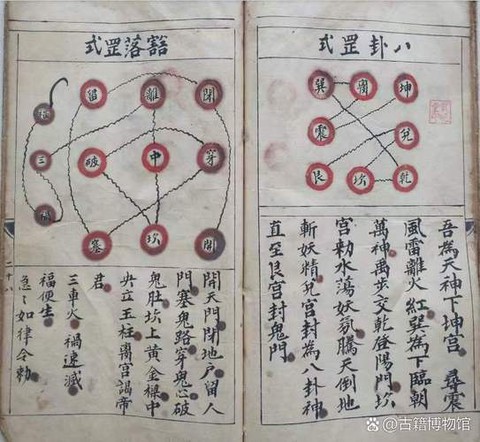 八卦罡式
坤 巽
兌 震
乾 坎 艮
吾為天神下坤宮 尋震
風雷離火紅巽為下臨朝
萬神禹步交乾登陽門坎
宮勅水蕩妖氛騰天倒地
斬妖精兌宮封為八卦神
直至艮宮封鬼門
豁落罡式
閉 離 留
穿 中 破 三
開 坎 塞
開天門閉地戶留人
門塞鬼路穿鬼心破
鬼肚坎上黃金樑中
央立玉柱離宮謁帝
君
三車火 禍速滅
福便生
急〻如律令勅
二十八
@古籍博物馆